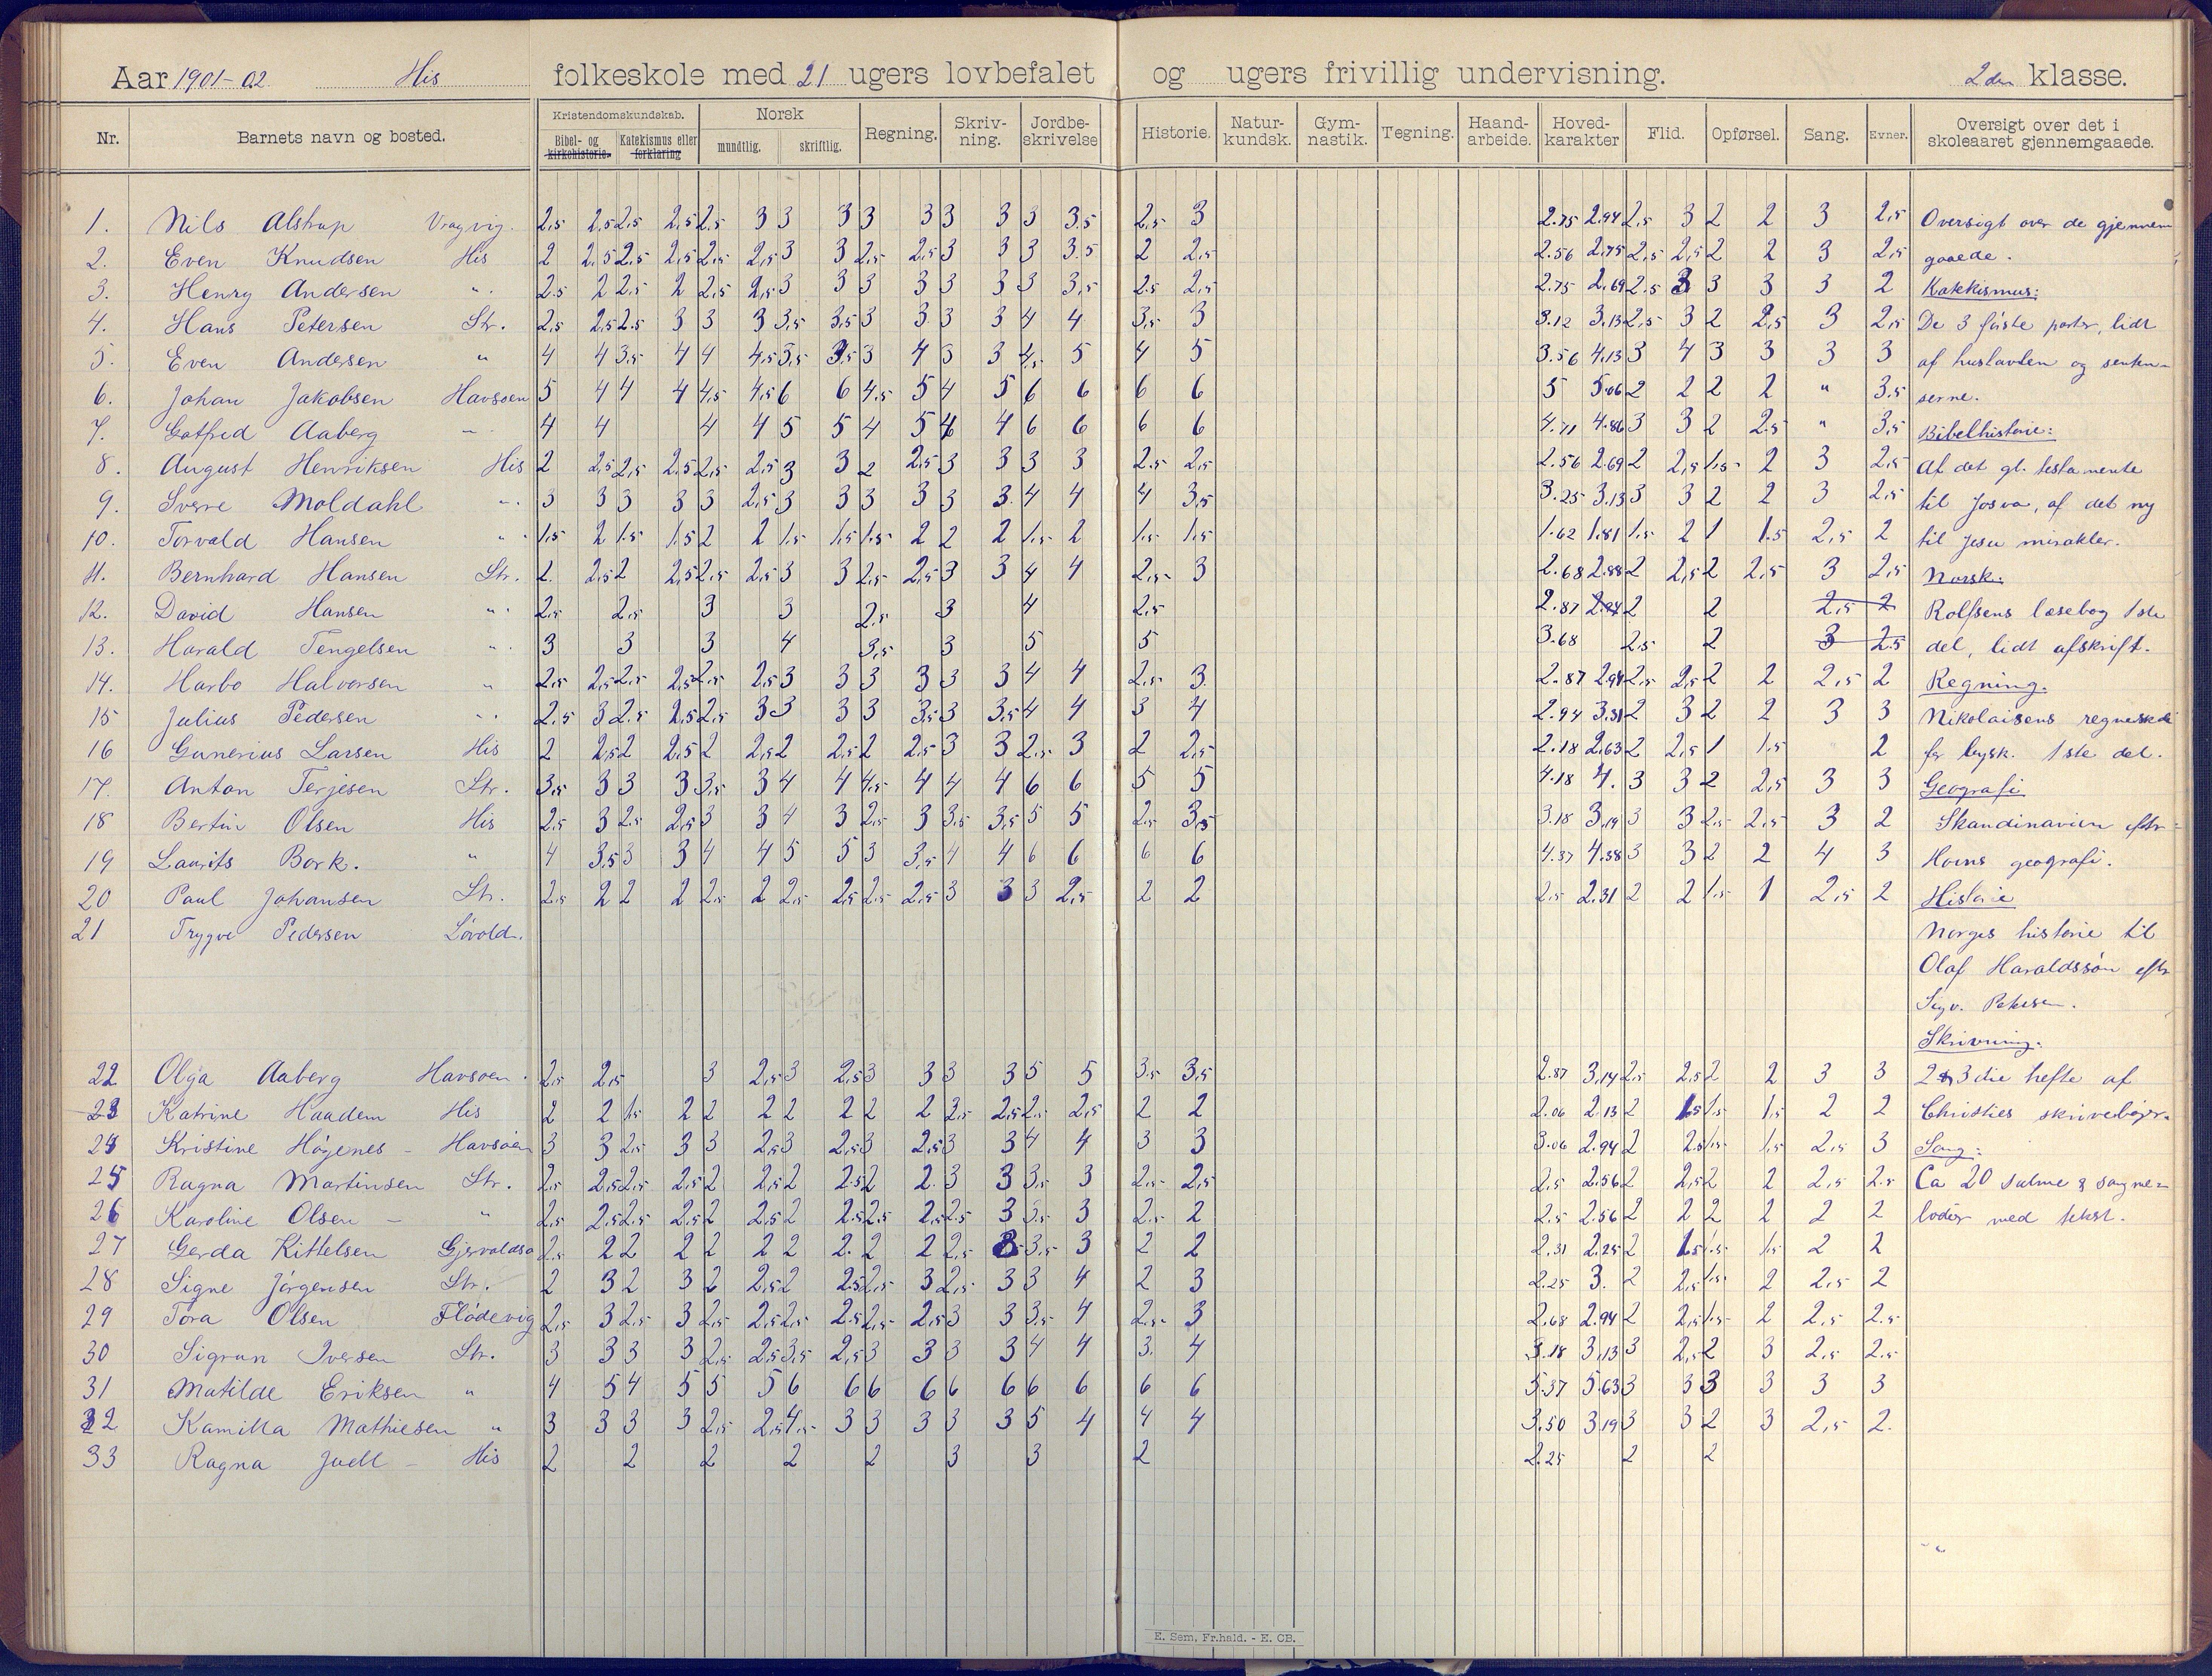 Aar 1901-02 His folkeskole med 21 ugers lovbefalet og ugers frivillig undervisning. 2den klasse.
Nr. Barnets navn og bosted. Kristendomskundskab. Bibel- og kirkehistorie. Katekismus eller forklaring Norsk mundtlig. skriftlig. Regning. Skriv-ning. Jordbe-skrivelse Historie. Natur-kundsk. Gym-nastik. Tegning. Haand-arbeide. Hoved-karakter Flid. Opførsel. Sang. Evner. Oversigt over det i skoleaaret gjennemgaaede.
1. Nils Alstrup Vragvig. 2,5 2,5 2,5 2,5 2,5 3 3 3 3 3 3 3 3 3,5 2,5 3 2.75 2.94 2,5 3 2 2 3 2,5 Oversigt over de gjennem
2. Even Knudsen His 2 2,5 2,5 2,5 2,5 2,5 3 3 2,5 2,5 3 3 3 3.5 2 2,5 2.56 2.75 2,5 2,5 2 2 3 2,5 gaaede.
3. Henry Andersen " 2.5 2 2,5 2 2,5 2,5 3 3 3 3 3 3 3 3,5 2.5 2,5 2.75 2.69 2.5 3 3 3 3 2 Katekismus:
4. Hans Petersen Str. 2,5 2,5 2.5 3 3 3 3,5 3,5 3 3 3 3 4 4 3,5 3 3.12 3.13 2,5 3 2 2,5 3 2,5 De 3 første parter, lidt
5. Even Andersen " 4 4 3,5 4 4 4,5 3,5 3,5 3 4 3 3 4,5 5 4 5 3.56 4.13 3 4 3 3 3 3 af hustavlen og senten-
6. Johan Jakobsen Havsøen 5 4 4 4 4,5 4,5 6 6 4,5 5 4 5 6 6 6 6 5 5.06 2 2 2 2 " 3.5 serne.
7. Gotfred Aaberg " 4 4 4 4 5 5 4 5 4 4 6 6 6 6 4.71 4.86 3 3 2 2.5 " 3,5 Bibelhistorie:
8. August Henriksen His 2 2,5 2,5 2.5 2,5 2.5 3 3 2 2,5 3 3 3 3 2.5 2,5 2.56 2.69 2 2,5 1.5 2 3 2,5 Af det gl. testamente
9. Sverre Moldahl " 3 3 3 3 3 2,5 3 3 3 3 3 3. 4 4 4 3,5 3.25 3.13 3 3 2 2 3 2,5 til Josva, af det ny
10. Torvald Hansen " 1,5 2 1,5 1,5 2 2 1,5 1,5 1,5 2 2 2 1,5 2 1,5 1,5 1.62 1.81 1,5 2 1 1.5 2,5 2 til Jesu mirakler.
11. Bernhard Hansen Str. 2. 2,5 2 2,5 2,5 2,5 3 3 2,5 2,5 3 3 4 4 2,5 3 2.68 2.88 2 2,5 2 2,5 3 2,5 Norsk:
12. David Hansen " 2,5 2,5 3 3 2,5 3 4 2,5 2.87 2 2 2,5 2 Rolfsens læsebog 1ste
13. Harald Tengelsen " 3 3 3 4 3,5 3 5 5 3.68 2.5 2 3 2.5 del, lidt afskrift.
14. Harbo Halvorsen " 2,5 2,5 2,5 2,5 2,5 2,5 3 3 3 3 3 3 4 4 2,5 3 2.87 2.94 2,5 2,5 2 2 2,5 2 Regning.
15 Julius Pedersen " 2.5 3 2.5 2,5 2,5 3 3 3 3 3,5 3 3,5 4 4 3 4 2.94 3.31 2 3 2 2 3 3 Nikolaisens regneskole
16 Gunerius Larsen His 2 2,5 2 2,5 2 2,5 2 2,5 2 2,5 3 3 2,5 3 2 2,5 2.18 2.63 2 2,5 1 1,5 2 for bysk. 1ste del.
17. Anton Terjesen Str. 3,5 3 3 3 3,5 3 4 4 4,5 4 4 4 6 6 5 5 4.18 4. 3 3 2 2,5 3 3 Geografi
18 Bertin Olsen His 2,5 3 2,5 2,5 3 3 4 3 2,5 3 3,5 3,5 5 5 2,5 3,5 3.18 3.19 3 3 2,5 2,5 3 2 Skandinavien efter
19 Laurits Bork. " 4 3,5 3 3 4 4 5 5 3 3,5 4 4 6 6 6 6 4.37 4.38 3 3 2 2 4 3 Horns geografi.
20 Paul Johansen Str. 2,5 2 2 2 2,5 2 2,5 2,5 2,5 2,5 3 3 3 2,5 2 2 2,5 2.31 2 2 1,5 1 2,5 2 Historie
21 Trygve Pedersen Løvold. Norges historie til
Olaf Haraldssøn eftr
Sigv. Petersen.
Skrivning.
22 Olga Aaberg Havsøen. 2,5 2,5 3 2,5 3 2,5 3 3 3 3 5 5 3,5 3,5 2.87 3.14 2,5 2,5 2 2 3 3 2 & 3die hefte af
23 Katrine Haadem His 2 2 1,5 2 2 2 2 2 2 2 2,5 2,5 2,5 2,5 2 2 2.06 2.13 2 1,5 1,5 1,5 2 2 Christies skrivebøger.
24 Kristine Høgenes - Havsøen 3 3 2,5 3 3 2,5 3 2,5 3 2,5 3 3 4 4 3 3 3.06 2.94 2 2,5 1,5 1,5 2,5 3 Sang:
25 Ragna Martinsen Str. 2,5 2,5 2,5 2,5 2 2,5 2 2.5 2 2. 3 3 3,5 3 2,5 2,5 2,5 2.56 2 2,5 2 2 2,5 2.5 Ca 20 salme & sangme-
26 Karoline Olsen - " 2,5 2,5 2,5 2,5 2 2,5 2 2.5 2,5 2,5 2.5 3 3,5 3 2,5 2 2.5 2.56 2 2 2 2 2 2 lodier med tekst.
27 Gerda Kittelsen Gjervoldsø 2,5 2 2 2 2 2 2 2. 2 2 2,5 3 3,5 3 2 2 2.31 2.25 2 1,5 1,5 1,5 2 2
28 Signe Jørgensen Str. 2 3 2 3 2 2,5 2 2.5 2,5 3 2,5 3 3 4 2 3 2.25 3. 2 2,5 1,5 2 2,5 2
29 Tora Olsen Flødevig 2,5 3 2,5 3 2,5 2,5 2,5 2.5 2,5 2,5 3 3 3,5 4 2,5 3 2.68 2.94 2 2,5 1,5 2 2,5 2.5
30 Sigrun Iversen Str. 3 3 3 3 2,5 2,5 3,5 2,5 3 3 3 3 4 4 3. 4 3.18 3,13 3 2,5 2 3 2,5 2.5
31 Matilde Eriksen " 4 5 4 5 5 5 6 6 6 6 6 6 6 6 6 6 5.37 5.63 3 3 3 3 3 3
32 Kamilla Mathiesen " 3 3 3 3 2,5 2,5 4,5 3 3 3 3 3 5 4 4 4 3.50 3.19 3 3 2 3 2,5 2.
33 Ragna Juell - His 2 2 2 2 2 3 3 2 2.25 2 2
E. Sem, Fr.hald. - E. CB.